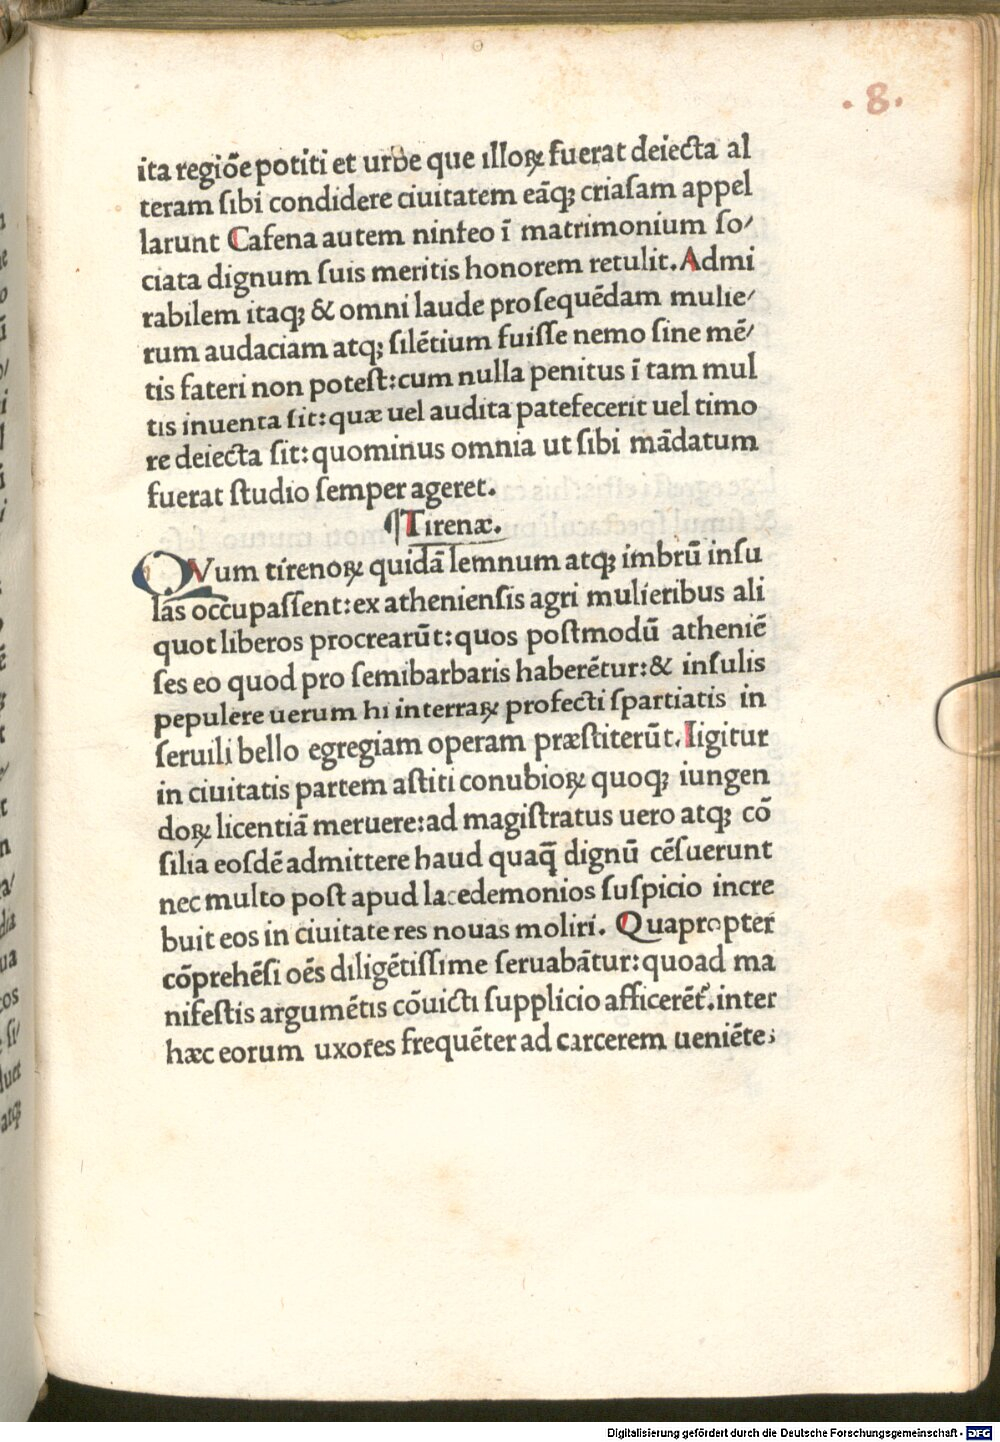 . 8 .
ita regiōe potiti et urbe que illoꝝ fuerat deiecta al
teram ſibi condidere ciuitatem eāqꝫ criaſam appel
larunt Cafena autem ninfeo ī matrimonium ſo⸗
ciata dignum ſuis meritis honorem retulit. Admi
rabilem itaqꝫ & omni laude proſequēdam mulie⸗
rum audaciam atqꝫ ſilētium fuiſſe nemo ſine mē⸗
tis fateri non poteſt:cum nulla penitus ī tam mul
tis inuenta ſit:quæ uel audita patefecerit uel timo
re deiecta ſit:quominus omnia ut ſibi mādatum
fuerat ſtudio ſemper ageret.
¶Tirenæ.
QVum tirenoꝝ quidā lemnum atqꝫ imbrū inſu
las occupaſſent:ex athenienſis agri mulieribus ali
quot liberos procrearūt:quos poſtmodū atheniē
ſes eo quod pro ſemibarbaris haberētur:& inſulis
pepulere uerum hi interraꝝ profecti ſpartiatis in
ſeruili bello egregiam operam præſtiterūt. Iigitur
in ciuitatis partem aſtiti conubioꝝ quoqꝫ iungen
doꝝ licentiā meruere:ad magiſtratus uero atqꝫ cō
ſilia eoſdē admittere haud quaq̄ dignū cēſuerunt
nec multo poſt apud lacedemonios ſuſpicio incre
buit eos in ciuitate res nouas moliri. Quapropter
cōprehēſi oēs diligētiſſime ſeruabātur:quoad ma
nifeſtis argumētis cōuicti ſupplicio afficerēt᷑.inter
hæc eorum uxores frequēter ad carcerem ueniēte;
Digitalisierung gefördert durch die Deutsche Forschungsgemeinschaft - DFG